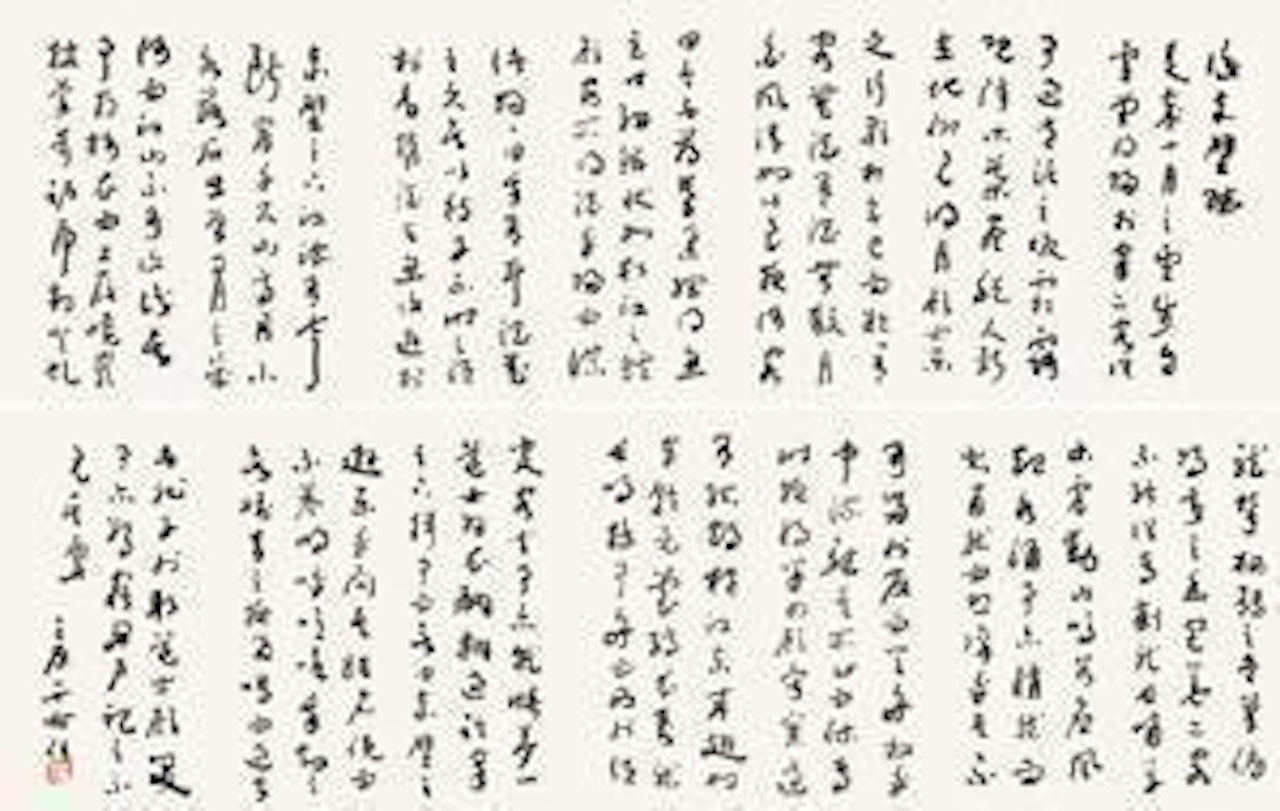 後赤壁賦
是歲十月之望步自
雪堂將歸於臨皋二客從
予過黃泥之坂霜露
既降木葉盡脫人影
在地仰見明月顧而樂
之行歌相答已而歎曰有
客無酒有酒無肴月
白風清如此良夜何客
曰今者薄暮舉網得魚巨
口細鱗狀如松江之鱸
顧安所得酒乎歸而謀
諸婦婦曰我有斗酒藏
之久矣以待子不時之需
於是攜酒與魚復遊於
赤壁之下江流有聲
斷岸千尺山高月小
水落石出曾日月之幾
何而江山不可復識矣
予乃攝衣而上履巉岩
披蒙茸踞虎豹登虬
龍攀栖鶻之危巢俯
馮夷之幽宮蓋二客
不能從焉劃然長嘯草
木震動山鳴谷應風
起水涌予亦悄然而
悲肅然而恐凜乎其不
可留也反而登舟放乎
中流聽其所止而休焉
時夜將半四顧寂寥適
有孤鶴橫江東來翅如
車輪玄裳縞衣戛然
長鳴掠予舟而西也須
臾客去予亦就睡夢一
道士羽衣翩躚過臨皋
之下揖予而言曰赤壁之
遊樂乎問其姓名俯而
不答嗚呼噫嘻我知之
矣疇昔之夜飛鳴而過我
者非子也耶道士顧笑
予亦驚寤開戶視之不
見其處